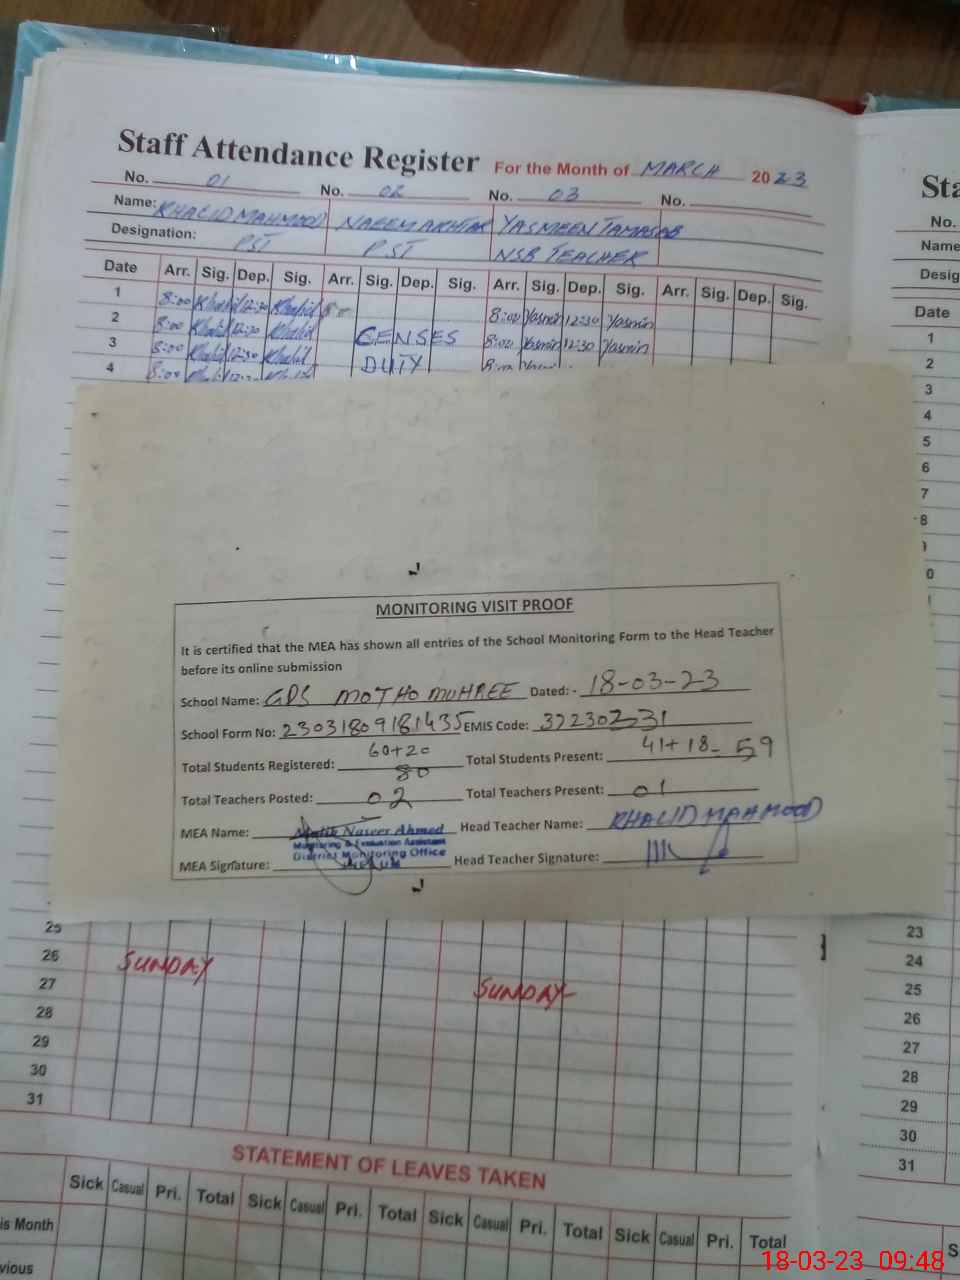 Staff Attendance Register For the Month of MARCH 2023
No. 01 No. 02 No. 03 No.
Name: KHALID MAHMOOD NAEEM AKHTAR YASMEEN
Designation: PST PST NSB TEACHER
Date Arr. Sig. Dep. Sig. Arr. Sig. Dep. Sig. Arr. Sig. Dep. Sig. Arr. Sig. Dep. Sig.
1 8:00 Khalid 12:30 Khalid 8:00 Yasmin 12:30 Yasmin
2 8:00 Khalid 12:30 Khalid CENSES 8:00 Yasmin 12:30 Yasmin
3 8:00 Khalid 12:30 Khalid DUTY
4 8:00
MONITORING VISIT PROOF
It is certified that the MEA has shown all entries of the School Monitoring Form to the Head Teacher
before its online submission
School Name: GPS MOTHO MUHREE Dated: - 18-03-23
School Form No: 23031809181435 EMIS Code: 37230231
60+20 41+18- 59
Total Students Registered: 80 Total Students Present:
Total Teachers Posted: 02 Total Teachers Present: 01
MEA Name: Malik Naseer Ahmed Head Teacher Name: KHALID MAHMOOD
Monitoring & Evaluation Assistant
District Monitoring Office
MEA Signature: Head Teacher Signature:
25
26 SUNDAY SUNDAY
27
28
29
30
31
STATEMENT OF LEAVES TAKEN
Sick Casual Pri. Total Sick Casual Pri. Total Sick Casual Pri. Total Sick Casual Pri. Total
is Month
vious
Sta
No.
Name
Desig
Date
1
2
3
4
5
6
7
8
23
24
25
26
27
28
29
30
31
S
18-03-23 09:48